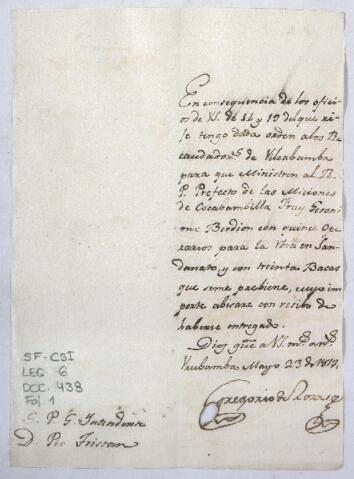 En consequencia de los ofici
os de VS. de 14 y 19 del que ri
je tengo dada orden a los Re
caudador.s de Vilcabamba
para que Ministren al R.
P. Prefecto de las Miciones
de Cocabambilla Fray Geroni
mo con quince Ope
rarios para la en
y con treinta Bacas
que seme prebiene, cuyo im
porte abisare con recibo de
haberse entregado.
Dios gũe a VS. m.s an.s
Urubamba Mayo 23 de
Gregorio de
SF-CSI
LEG. 6
DOC. 438
Fol. 1
S. P. G. Intendente
D. Pio Tristan